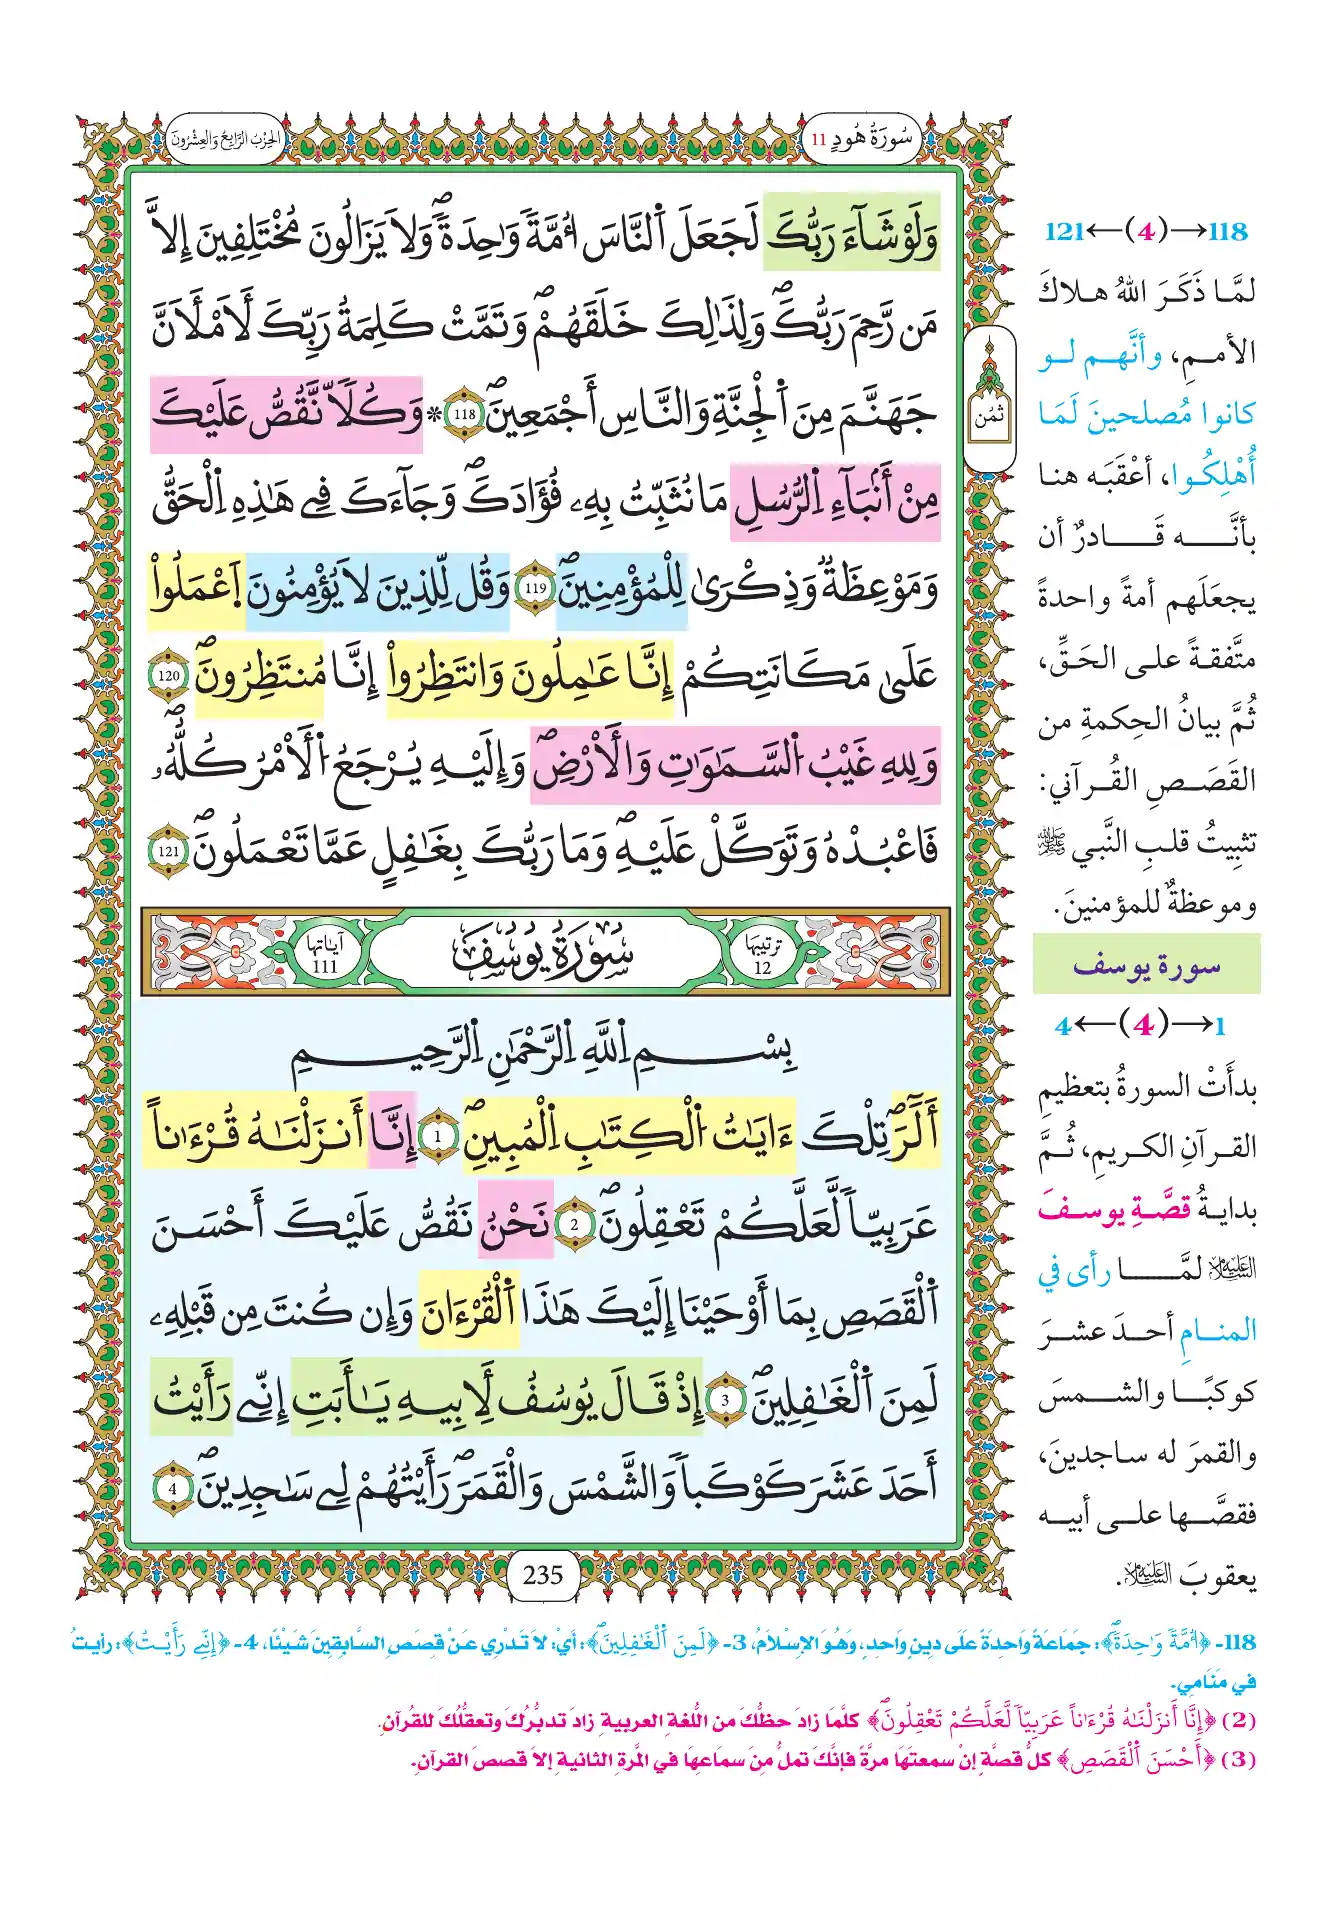 سُورَةُ هُودٍ 11
الحِزْبُ الرَّابِعُ وَالعِشْرُونَ
وَلَوْ شَآءَ رَبُّكَ لَجَعَلَ اَ۬لنَّاسَ أُمَّةٗ وَٰحِدَةٗۖ وَلَا يَزَالُونَ مُخْتَلِفِينَ إِلَّا
مَن رَّحِمَ رَبُّكَۖ وَلِذَٰلِكَ خَلَقَهُمْۖ وَتَمَّتْ كَلِمَةُ رَبِّكَ لَأَمْلَأَنَّ
جَهَنَّمَ مِنَ اَ۬لْجِنَّةِ وَالنَّاسِ أَجْمَعِينَۖ 118 * وَكُلّاٗ نَّقُصُّ عَلَيْكَ
ثُمُن
مِنْ أَنۢبَآءِ اِ۬لرُّسُلِ مَا نُثَبِّتُ بِهِۦ فُؤَادَكَۖ وَجَآءَكَ فِے هَٰذِهِ اِ۬لْحَقُّ
وَمَوْعِظَةٞ وَذِكْرَىٰ لِلْمُؤْمِنِينَۖ 119 وَقُل لِّلذِينَ لَا يُؤْمِنُونَ اَ۪عْمَلُواْ
عَلَىٰ مَكَانَتِكُمْ إِنَّا عَٰمِلُونَ وَانتَظِرُواْ إِنَّا مُنتَظِرُونَۖ 120
وَلِلهِ غَيْبُ اُ۬لسَّمَٰوَٰتِ وَالْأَرْضِۖ وَإِلَيْهِ يُرْجَعُ اُ۬لْأَمْرُ كُلُّهُۥۖ
فَاعْبُدْهُ وَتَوَكَّلْ عَلَيْهِۖ وَمَا رَبُّكَ بِغَٰفِلٍ عَمَّا تَعْمَلُونَۖ 121
ترتيبها 12
سُورَةُ يُوسُفَ
آياتها 111
بِسْمِ اِ۬للَّهِ اِ۬لرَّحْمَٰنِ اِ۬لرَّحِيمِ
أَلَٓرَۖ تِلْكَ ءَايَٰتُ اُ۬لْكِتَٰبِ اِ۬لْمُبِينِۖ 1 إِنَّا أَنزَلْنَٰهُ قُرْءَٰناً
عَرَبِيّاٗ لَّعَلَّكُمْ تَعْقِلُونَۖ 2 نَحْنُ نَقُصُّ عَلَيْكَ أَحْسَنَ
اَ۬لْقَصَصِ بِمَا أَوْحَيْنَا إِلَيْكَ هَٰذَا اَ۬لْقُرْءَانَ وَإِن كُنتَ مِن قَبْلِهِۦ
لَمِنَ اَ۬لْغَٰفِلِينَۖ 3 إِذْ قَالَ يُوسُفُ لِأَبِيهِ يَٰأَبَتِ إِنِّے رَأَيْتُ
أَحَدَ عَشَرَ كَوْكَباٗ وَالشَّمْسَ وَالْقَمَرَ رَأَيْتُهُمْ لِے سَٰجِدِينَۖ 4
235
118→(4)←121
لمَّا ذَكَرَ اللهُ هلاكَ
الأممِ، وأنَّهم لو
كانوا مُصلحينَ لَمَا
أُهْلِكُوا، أعْقَبَه هنا
بأنَّه قَادرٌ أن
يجعلَهم أمةً واحدةً
متَّفقةً على الحَقِّ،
ثُمَّ بيانُ الحِكمةِ من
القَصَصِ القُرآني:
تثبِيتُ قلبِ النَّبي ﷺ
وموعظةٌ للمؤمنينَ.
سورة يوسف
1→(4)←4
بدأَتْ السورةُ بتعظيمِ
القرآنِ الكريمِ، ثُمَّ
بدايةُ قصَّةِ يوسفَ
عليه السلام لمَّا رأى في
المنامِ أحدَ عشرَ
كوكبًا والشمسَ
والقمرَ له ساجدينَ،
فقصَّها على أبيه
يعقوبَ عليه السلام.
118- ﴿أُمَّةٗ وَٰحِدَةٗۖ﴾: جَمَاعَةً وَاحِدَةً عَلَى دِينٍ وَاحِدٍ، وَهُوَ الإِسْلاَمُ، 3- ﴿لَمِنَ اَ۬لْغَٰفِلِينَۖ﴾: أيْ: لاَ تَدْرِي عَنْ قِصَصِ السَّابِقِينَ شَيْئًا، 4- ﴿إِنِّے رَأَيْتُ﴾: رأيتُ
في مَنَامِي.
(2) ﴿إِنَّا أَنزَلْنَٰهُ قُرْءَٰناً عَرَبِيّاٗ لَّعَلَّكُمْ تَعْقِلُونَۖ﴾ كلَّمَا زادَ حظُّكَ من اللُّغةِ العربيةِ زادَ تدبُّرُكَ وتعقُّلُكَ للقُرآنِ.
(3) ﴿أَحْسَنَ اَ۬لْقَصَصِ﴾ كلُّ قصَّةٍ إنْ سمعتَهَا مرَّةً فإنَّكَ تملُّ مِنَ سمَاعِهَا في المَّرةِ الثانيةِ إلاَ قصصَ القرآنِ.